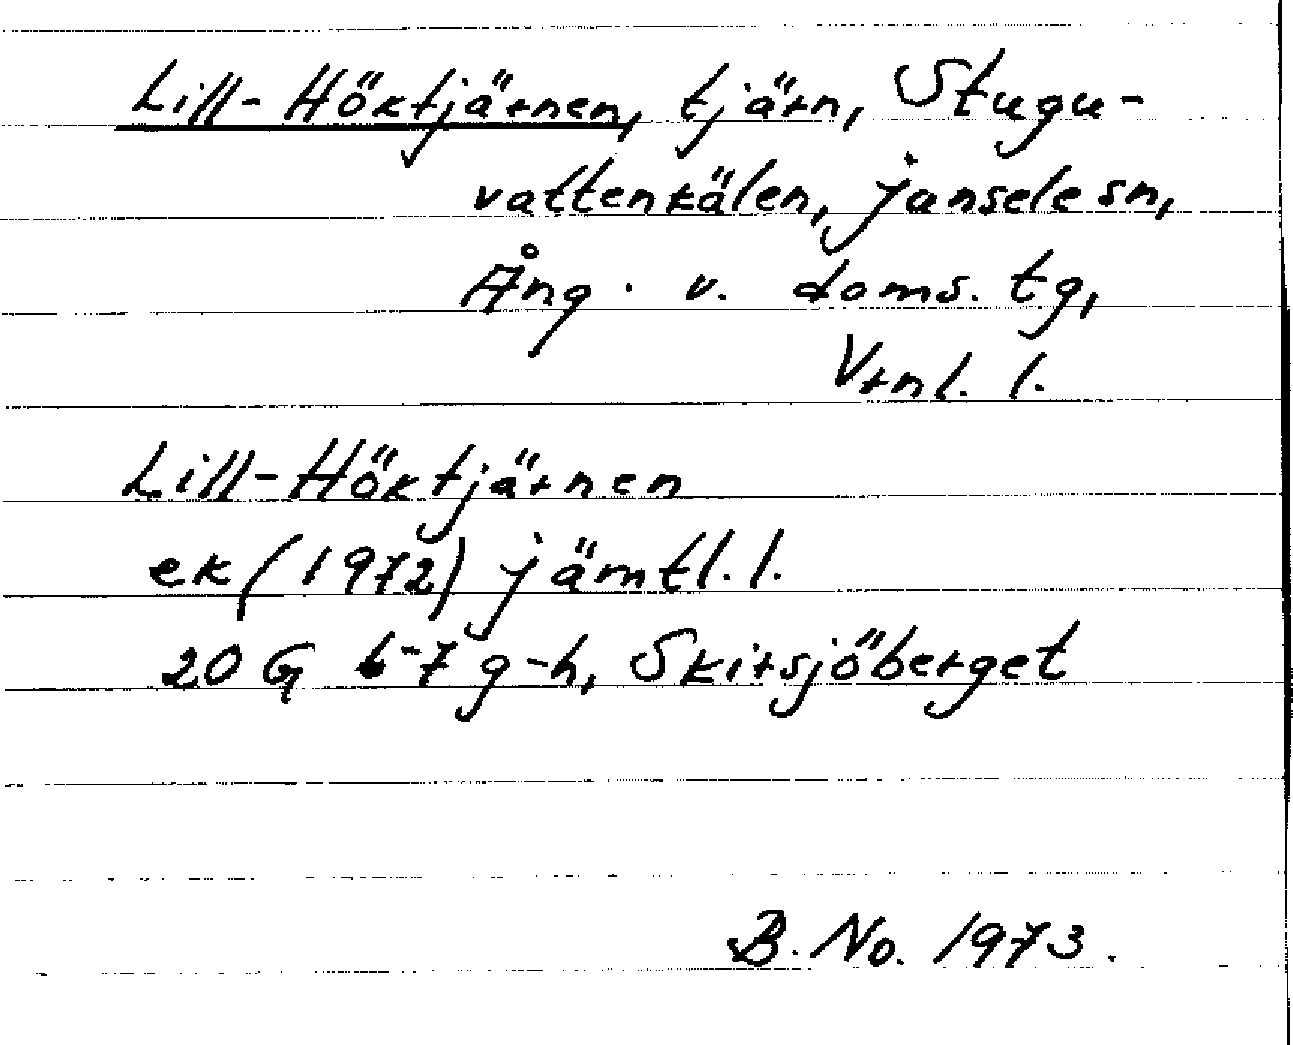 Lill-Höktjärnen, tjärn, Stugu-
vattenkälen, Junsele sn,
Ång. v. doms. tg,
Vrnl. l.
Lill-Höktjärnen
ek (1972) Jämtl. l.
20 G 6-7 g-h, Skirsjöberget
B. No. 1973.